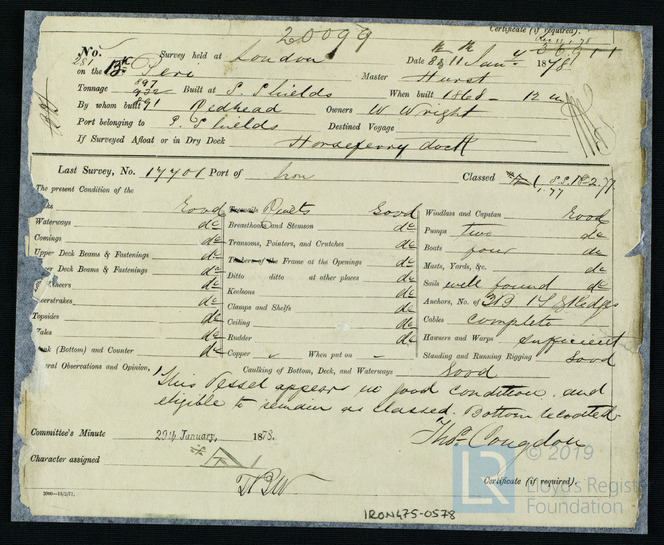 20099
Certificate (if required).
No. 281
Survey held at London
Date 8 & 11 Jany 1878
on the Bk Peri
Master Hurst
Tonnage 897
Built at S. Shields
When built 1868 -
By whom built Redhead
Owners W Wright
Port belonging to S. Shields
Destined Voyage
If Surveyed Afloat or in Dry Dock Horseferry dock
Last Survey, No. 17701 Port of Lon
Classed 1 S.S. 2.77
1.77
The present Condition of the
Good
Rivets Good
Windlass and Capstan Good
Waterways do
Breasthooks and Stemson do
Pumps Two do
Comings do
Transoms, Pointers, and Crutches do
Boats four do
Upper Deck Beams & Fastenings do
Timbers of the Frame at the Openings do
Masts, Yards, &c. do
Deck Beams & Fastenings do
Ditto ditto at other places do
Sails well found do
do
Keelsons do
Anchors, No. of 3B 1S & 2 Kedges
do
Clamps and Shelfs do
Cables complete
Topsides do
Ceiling do
Hawsers and Warps Sufficient
do
Rudder do
Standing and Running Rigging Good
(Bottom) and Counter do
Copper When put on -
General Observations and Opinion,
Caulking of Bottom, Deck, and Waterways Good
This Vessel appears in good condition, and
eligible to remain as classed. Bottom recoated
Thos. Congdon
Committee's Minute 29th January, 1878.
Character assigned
Certificate (if required).
IRON475-0578
© 2019
LR
Lloyd's Register
Foundation